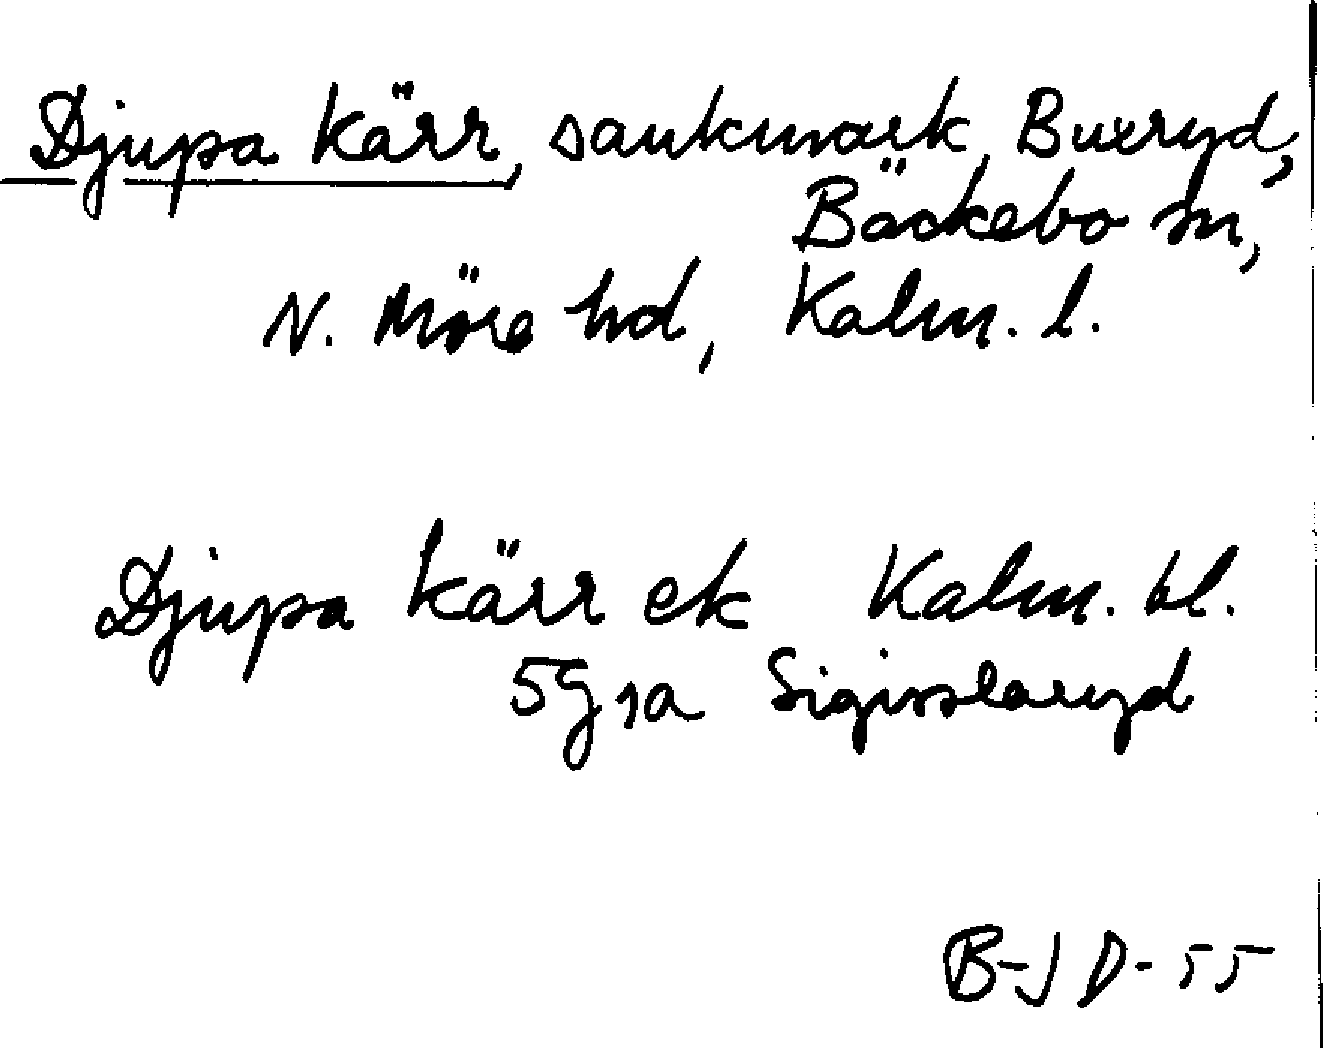 Djupa Kärr, sankmark, Buxryd,
Bäckebo sn,
N. Möre hd, Kalm. l.
Djupa kärr ek Kalm. bl.
5G1a Sigisslaryd
B-J D-55